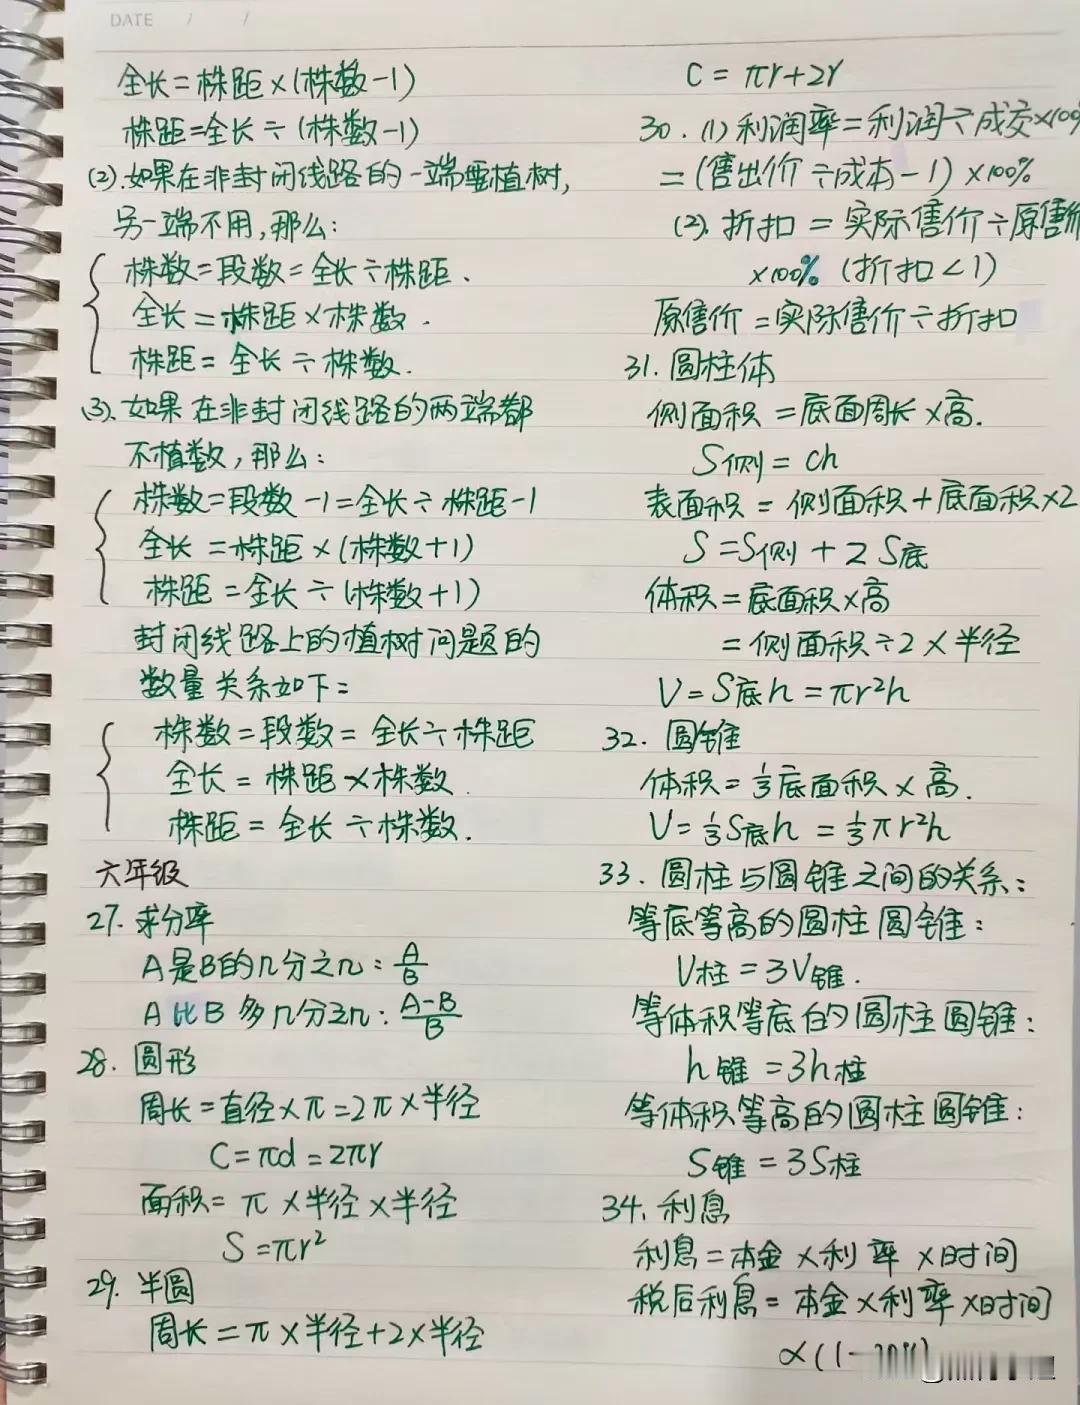 DATE / /
全长=株距×(株数-1)
株距=全长÷(株数-1)
(2).如果在非封闭线路的一端要植树,
另一端不用,那么:
株数=段数=全长÷株距.
全长=株距×株数.
株距=全长÷株数.
(3).如果在非封闭线路的两端都
不植数,那么:
株数=段数-1=全长÷株距-1
全长=株距×(株数+1)
株距=全长÷(株数+1)
封闭线路上的植树问题的
数量关系如下=
株数=段数=全长÷株距
全长=株距×株数.
株距=全长÷株数.
六年级
27.求分率
A是B的几分之几:A/B
A比B多几分之几:(A-B)/B
28.圆形
周长=直径×π=2π×半径
C=πd=2πr
面积=π×半径×半径
S=πr²
29.半圆
周长=π×半径+2×半径
C=πr+2r
30.(1)利润率=利润÷成交×100%
=(售出价÷成本-1)×100%
(2).折扣=实际售价÷原售价
×100%(折扣<1)
原售价=实际售价÷折扣
31.圆柱体
侧面积=底面周长×高.
S侧=ch
表面积=侧面积+底面积×2
S=S侧+2S底
体积=底面积×高
=侧面积÷2×半径
V=S底h=πr²h
32.圆锥
体积=⅓底面积×高.
V=⅓S底h=⅓πr²h
33.圆柱与圆锥之间的关系:
等底等高的圆柱圆锥:
V柱=3V锥.
等体积等底的圆柱圆锥:
h锥=3h柱
等体积等高的圆柱圆锥:
S锥=3S柱
34.利息
利息=本金×利率×时间
税后利息=本金×利率×时间
×(1-